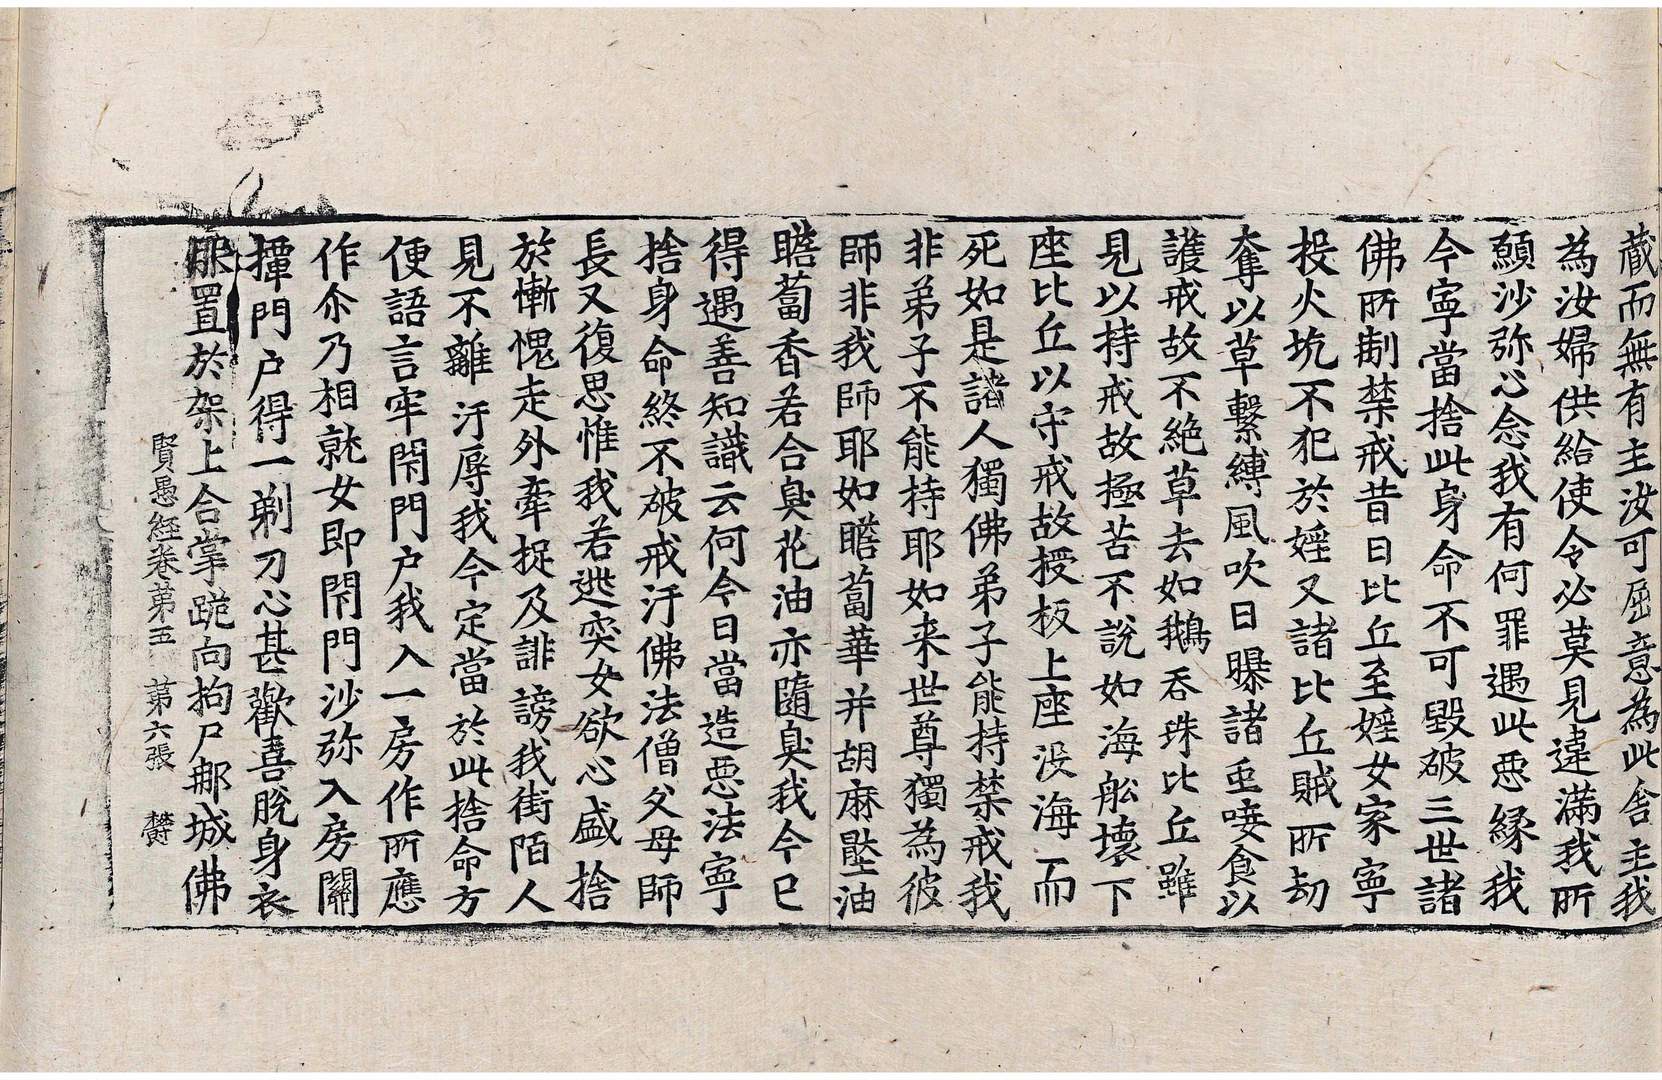 藏而無有主汝可屈意為此舍主我
為汝婦供給使令必莫見違滿我所
願沙弥心念我有何罪遇此惡緣我
今寧當捨此身命不可毀破三世諸
佛所制禁戒昔日比丘至婬女家寧
投火坑不犯於婬又諸比丘賊所劫
奪以草繫縛風吹日曝諸虫唼食以
護戒故不絕草去如鵝吞珠比丘雖
見以持戒故極苦不說如海舩壞下
座比丘以守戒故授板上座没海而
死如是諸人獨佛弟子能持禁戒我
非弟子不能持耶如来世尊獨為彼
師非我師耶如瞻蔔華并胡麻壓油
瞻蔔香若合臭花油亦隨臭我今已
得遇善知識云何今日當造惡法寧
捨身命終不破戒汙佛法僧父母師
長又復思惟我若逃突女欲心盛捨
於慚愧走外牽捉及誹謗我街陌人
見不離汙辱我今定當於此捨命方
便語言牢閇門户我入一房作所應
作尒乃相就女即閇門沙弥入房關
撢門户得一剃刀心甚歡喜脫身衣
服置於架上合掌跪向拘尸那城佛
賢愚經卷第五 第六張 欝